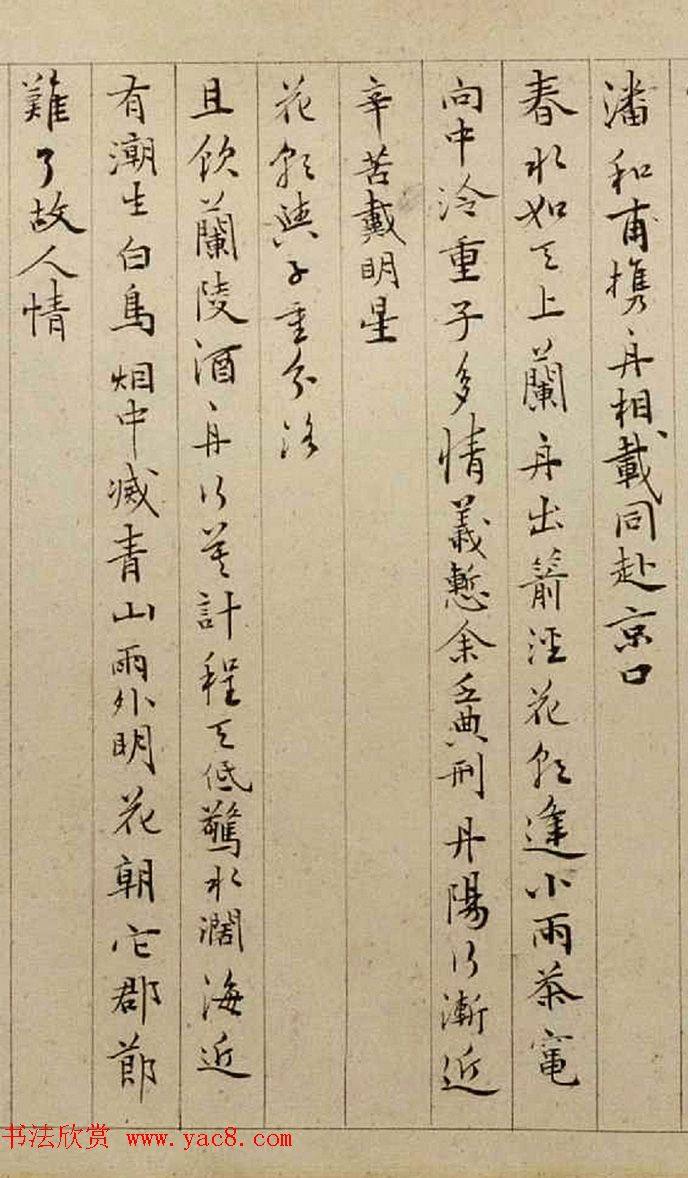 潘和甫携舟相載同赴京口
春水如天上蘭舟出箭涇花朝逢小雨茶竃
向中泠重子多情義慙余乏典刑丹陽行漸近
辛苦戴明星
花朝與子重分
且飲蘭陵酒舟行莫計程天低驚水濶海近
有潮生白鳥烟中滅青山雨外明花朝它郡節
難了故人情
书法欣赏 www.yac8.com